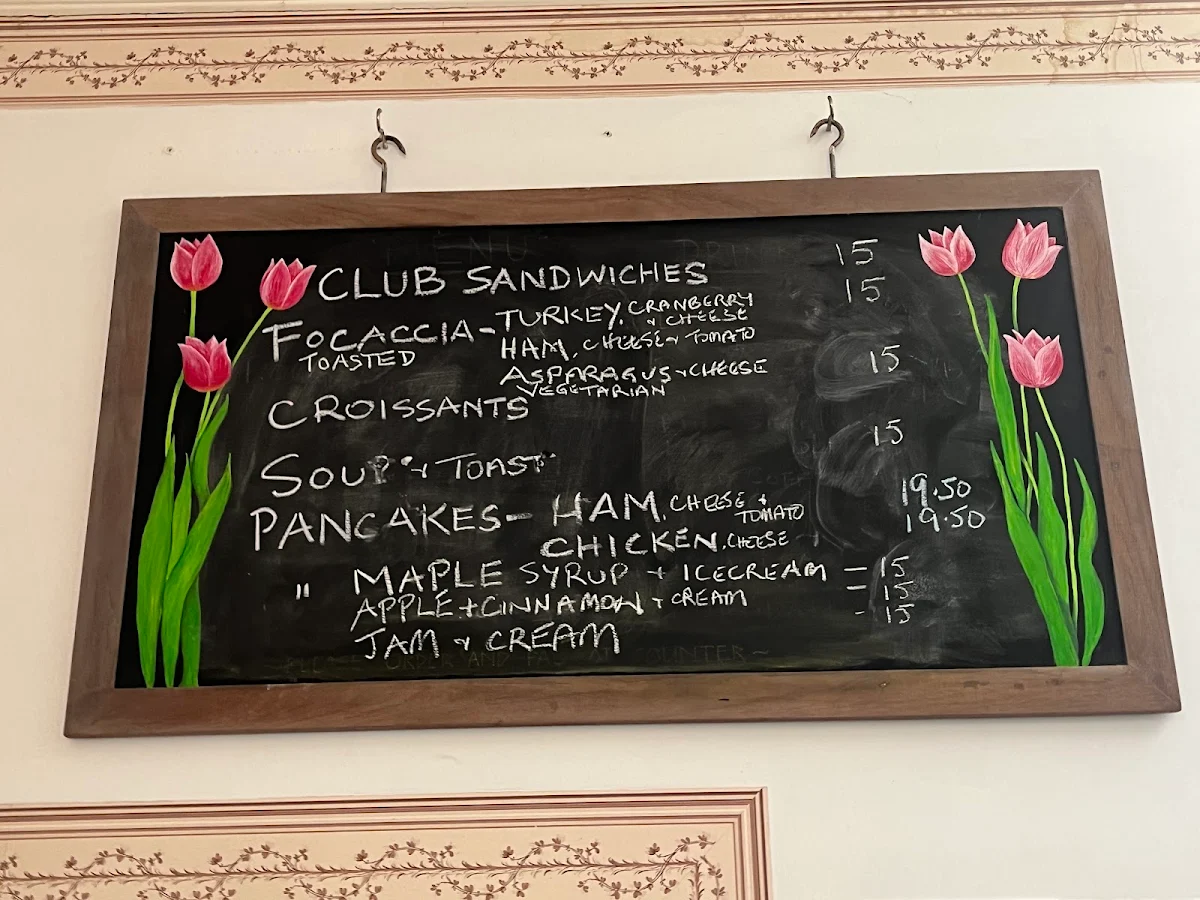 CLUB SANDWICHES 15
FOCACCIA - TURKEY, CRANBERRY 15
& CHEESE
TOASTED HAM, CHEESE & TOMATO
ASPARAGUS & CHEESE 15
VEGETARIAN
CROISSANTS
SOUP & TOAST 15
PANCAKES - HAM, CHEESE & 19.50
TOMATO
CHICKEN, CHEESE 19.50
" MAPLE SYRUP + ICECREAM = 15
APPLE + CINNAMON & CREAM = 15
JAM & CREAM - 15